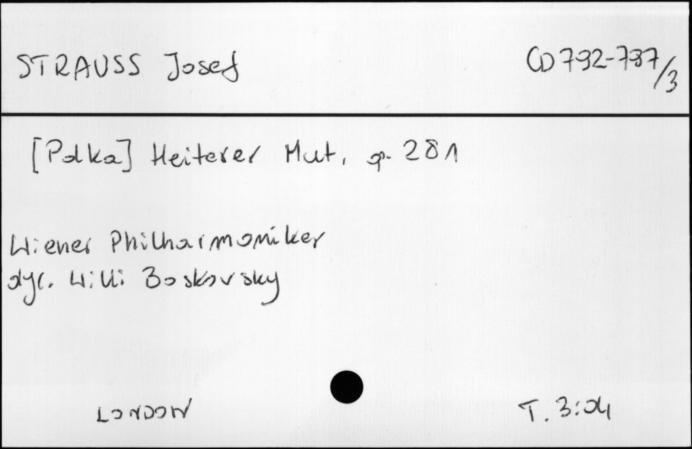 STRAUSS Josef
CD 792-797/3
[Polka] Heiterer Mut, op. 281
Wiener Philharmoniker
dyr. Willi Boskovsky
LONDON
T. 3:04